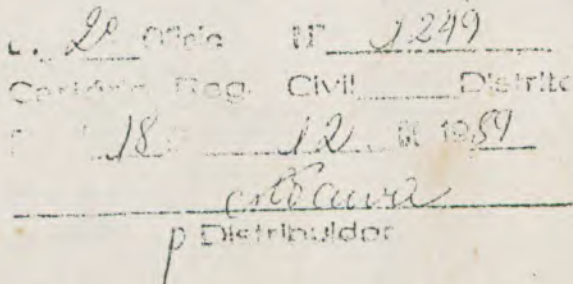 2º Oficio Nº 1249
Cartório Reg. Civil Distrito
18 12 de 1959
p Distribuidor